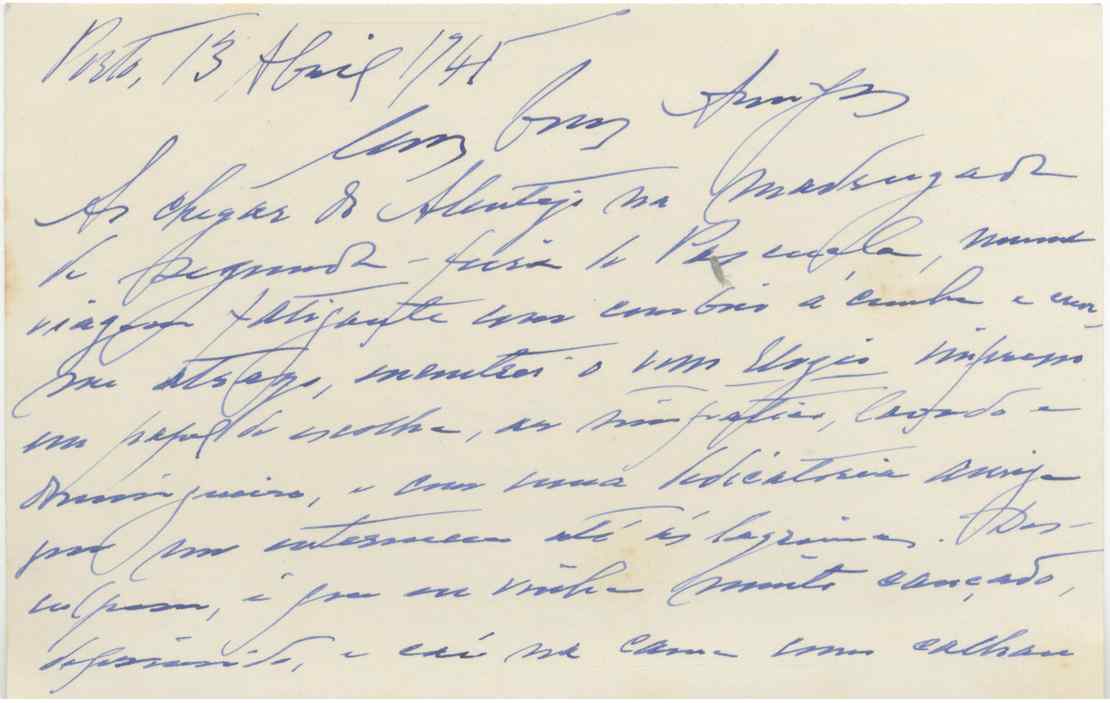 Porto, 13 Abril 1945
Meus bons Amigos
Ao chegar do Alentejo na madrugada
de segunda-feira de Pascoela, numa
viagem fatigante com comboio á cunha e enor-
me atrazo, encontrei o um Elogio impresso
em papel de escolha, as lavado e
domingueiro, e com uma dedicatoria amiga
que me enterneceu até ás lagrimas. Des-
culpem, é que eu vinha muito cançado,
deprimido, e caí na cama como calhau